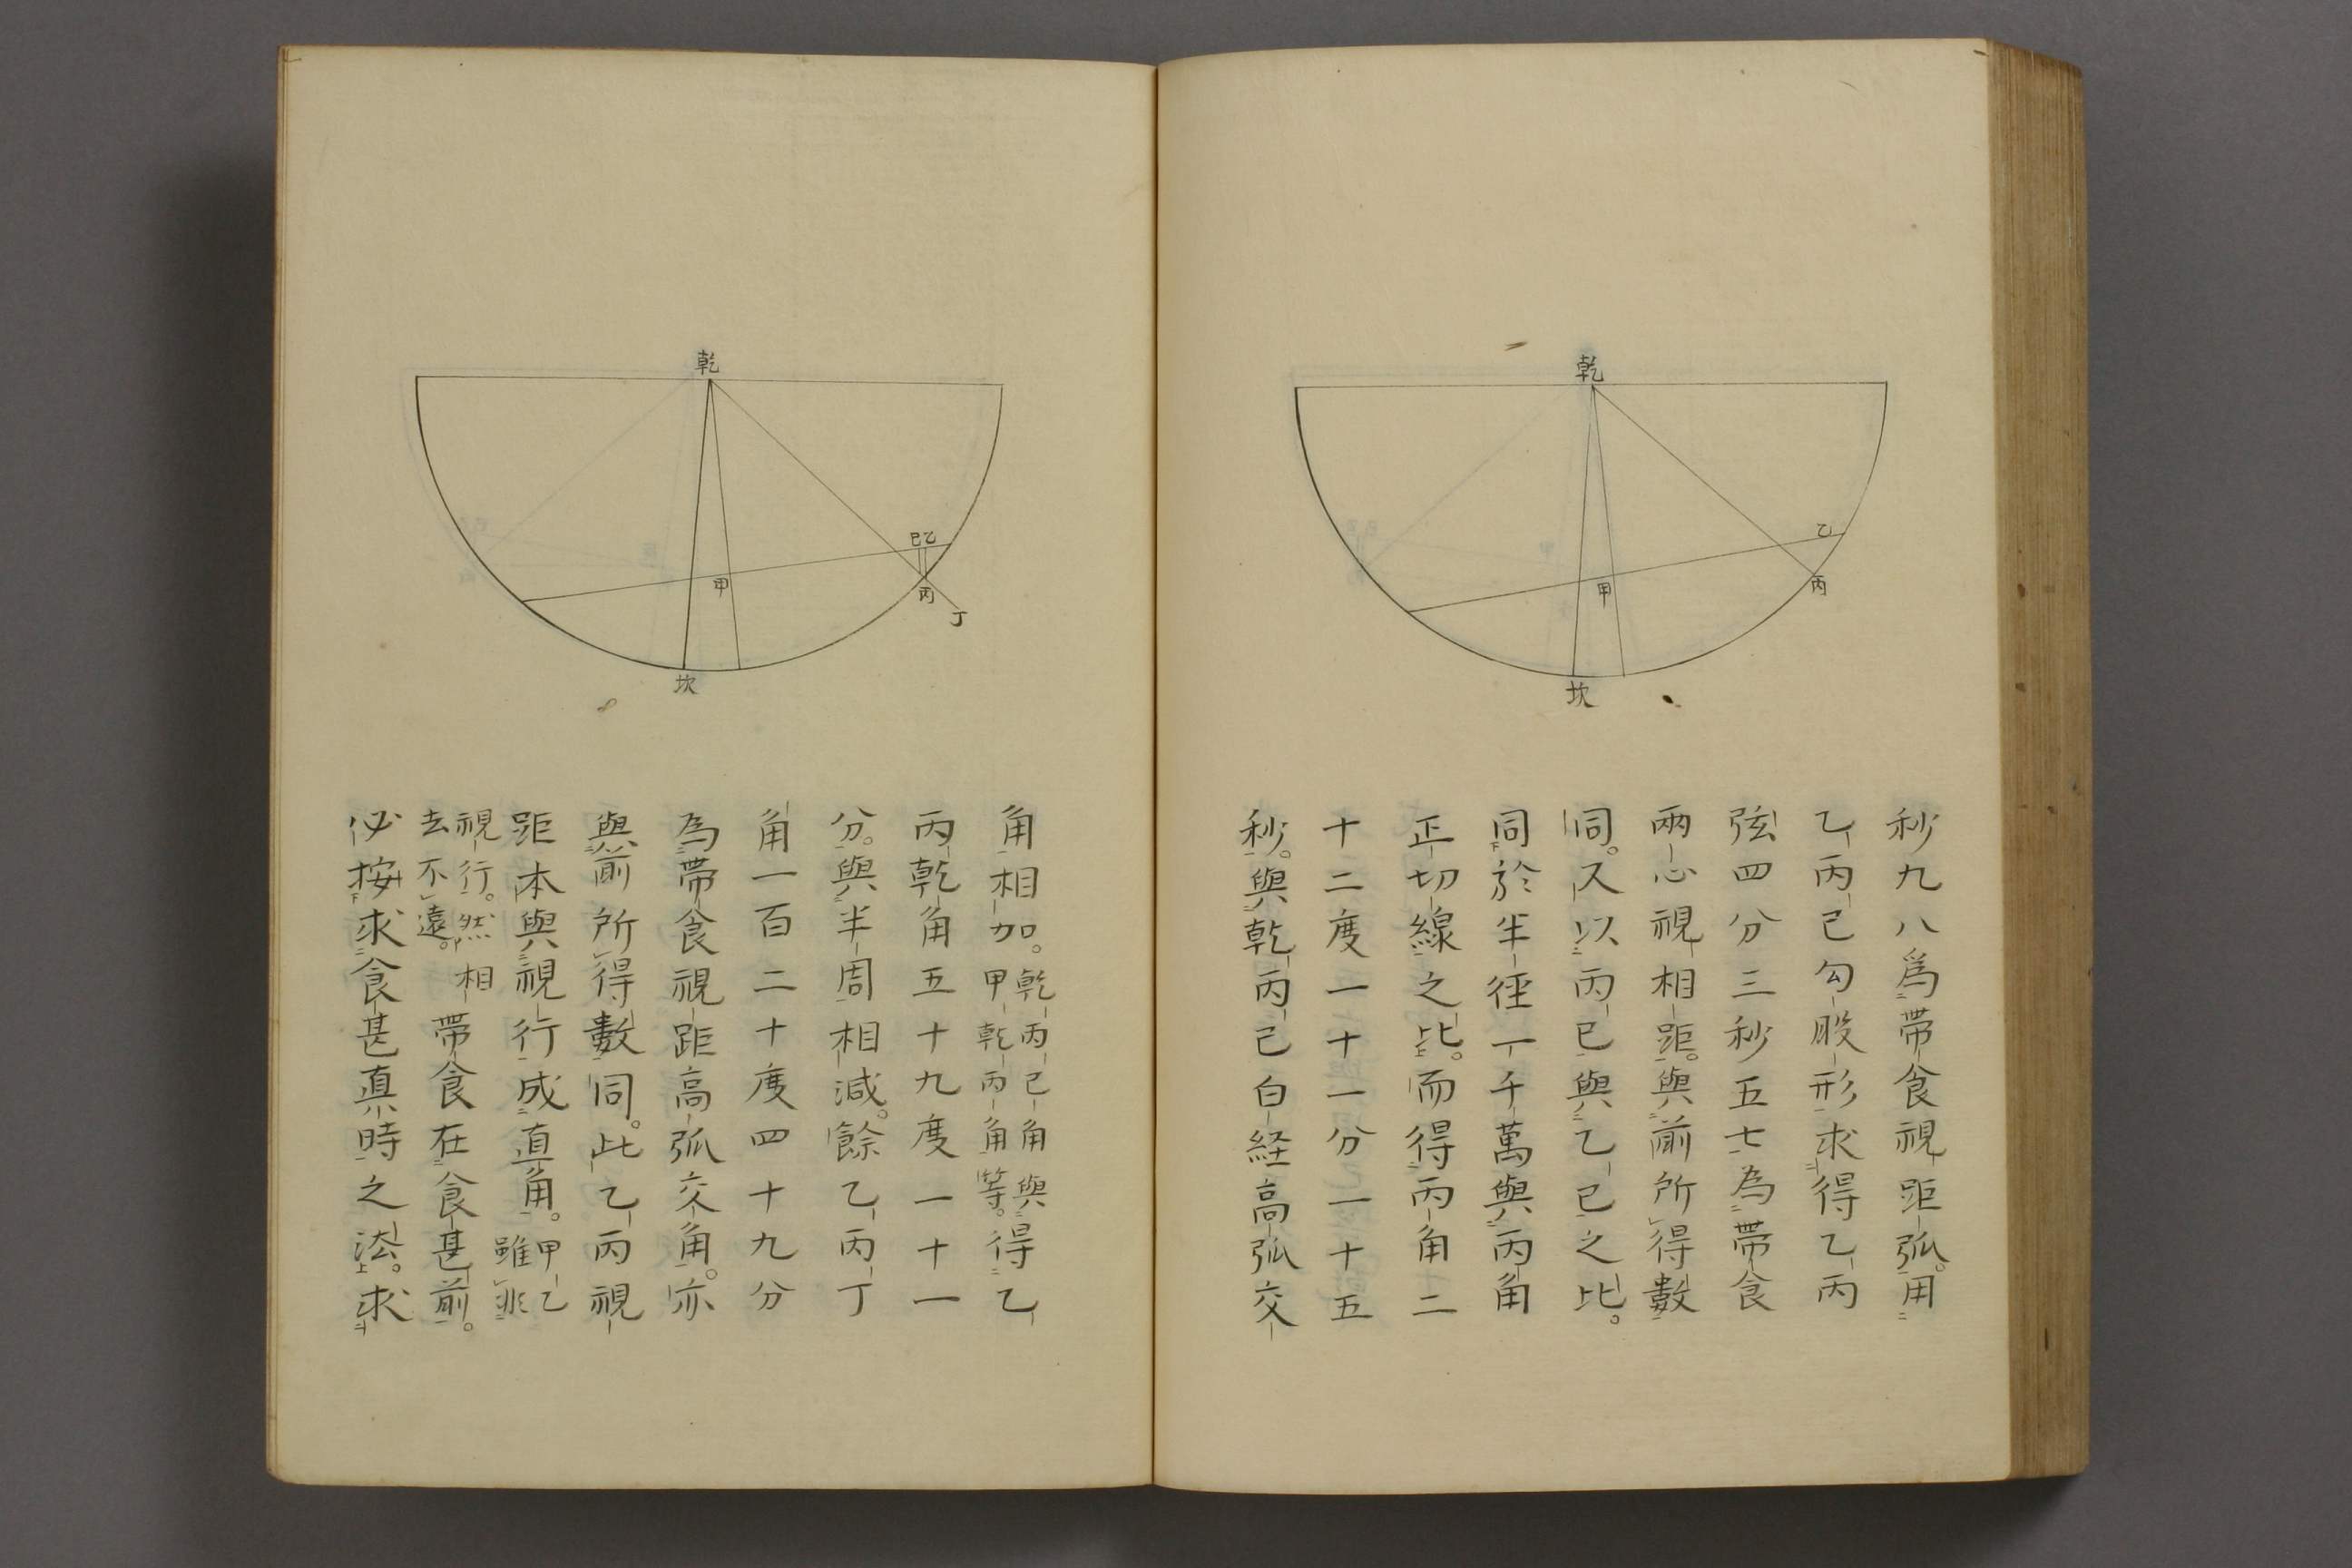 乾
乙
丙
甲
坎
秒九八爲帶食視距弧。用
乙丙己勾股形求得乙丙
弦四分三秒五七為帶食
兩心視相距。與前所得數
同。又以丙己與乙己之比。
同於半徑一千萬與丙角
正切線之比。而得丙角二
十二度一十一分一十五
秒。與乾丙己白経高弧交
乾
己乙
丙
丁
甲
坎
角相加。乾丙己角與甲乾丙角等。得乙
丙乾角五十九度一十一
分。與半周相減。餘乙丙丁
角一百二十度四十九分
為帶食視距高弧交角。亦
與前所得數同。此乙丙視
距本與視行成直角。甲乙雖非
視行。然相去不遠。帶食在食甚前。
必按求食甚真時之法。求